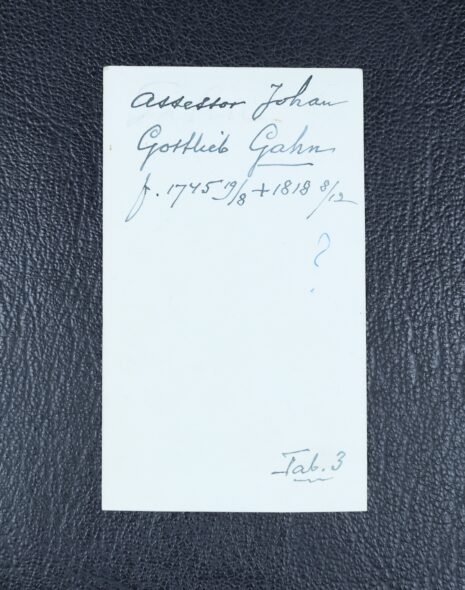 Assessor Johan
Gottlieb Gahn
f. 1745 19/8 + 1818 8/12
?
Tab. 3